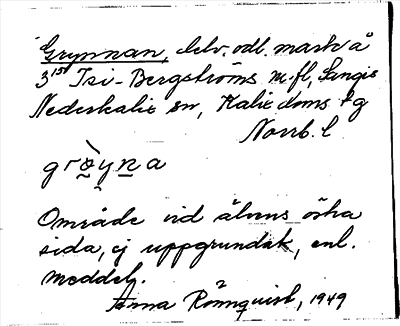 Grynnan, delv. odl. mark å
3¹⁵ Isi-Bergströms m.fl, Sangis
Nederkalix sn, Kalix doms tg
Norrb. l
grøyna
Område vid älvens östra
sida, ej uppgrundat, enl.
meddelj.
Anna Rönnquist, 1949